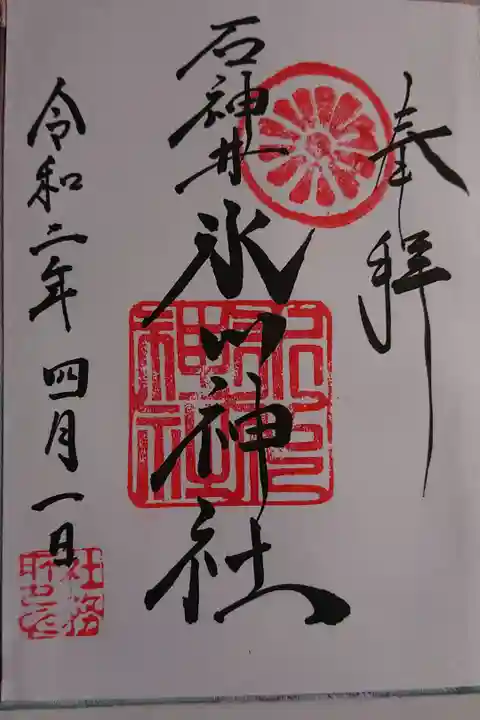 奉拝
石神井氷川神社
令和二年四月一日
氷川神社
社務所